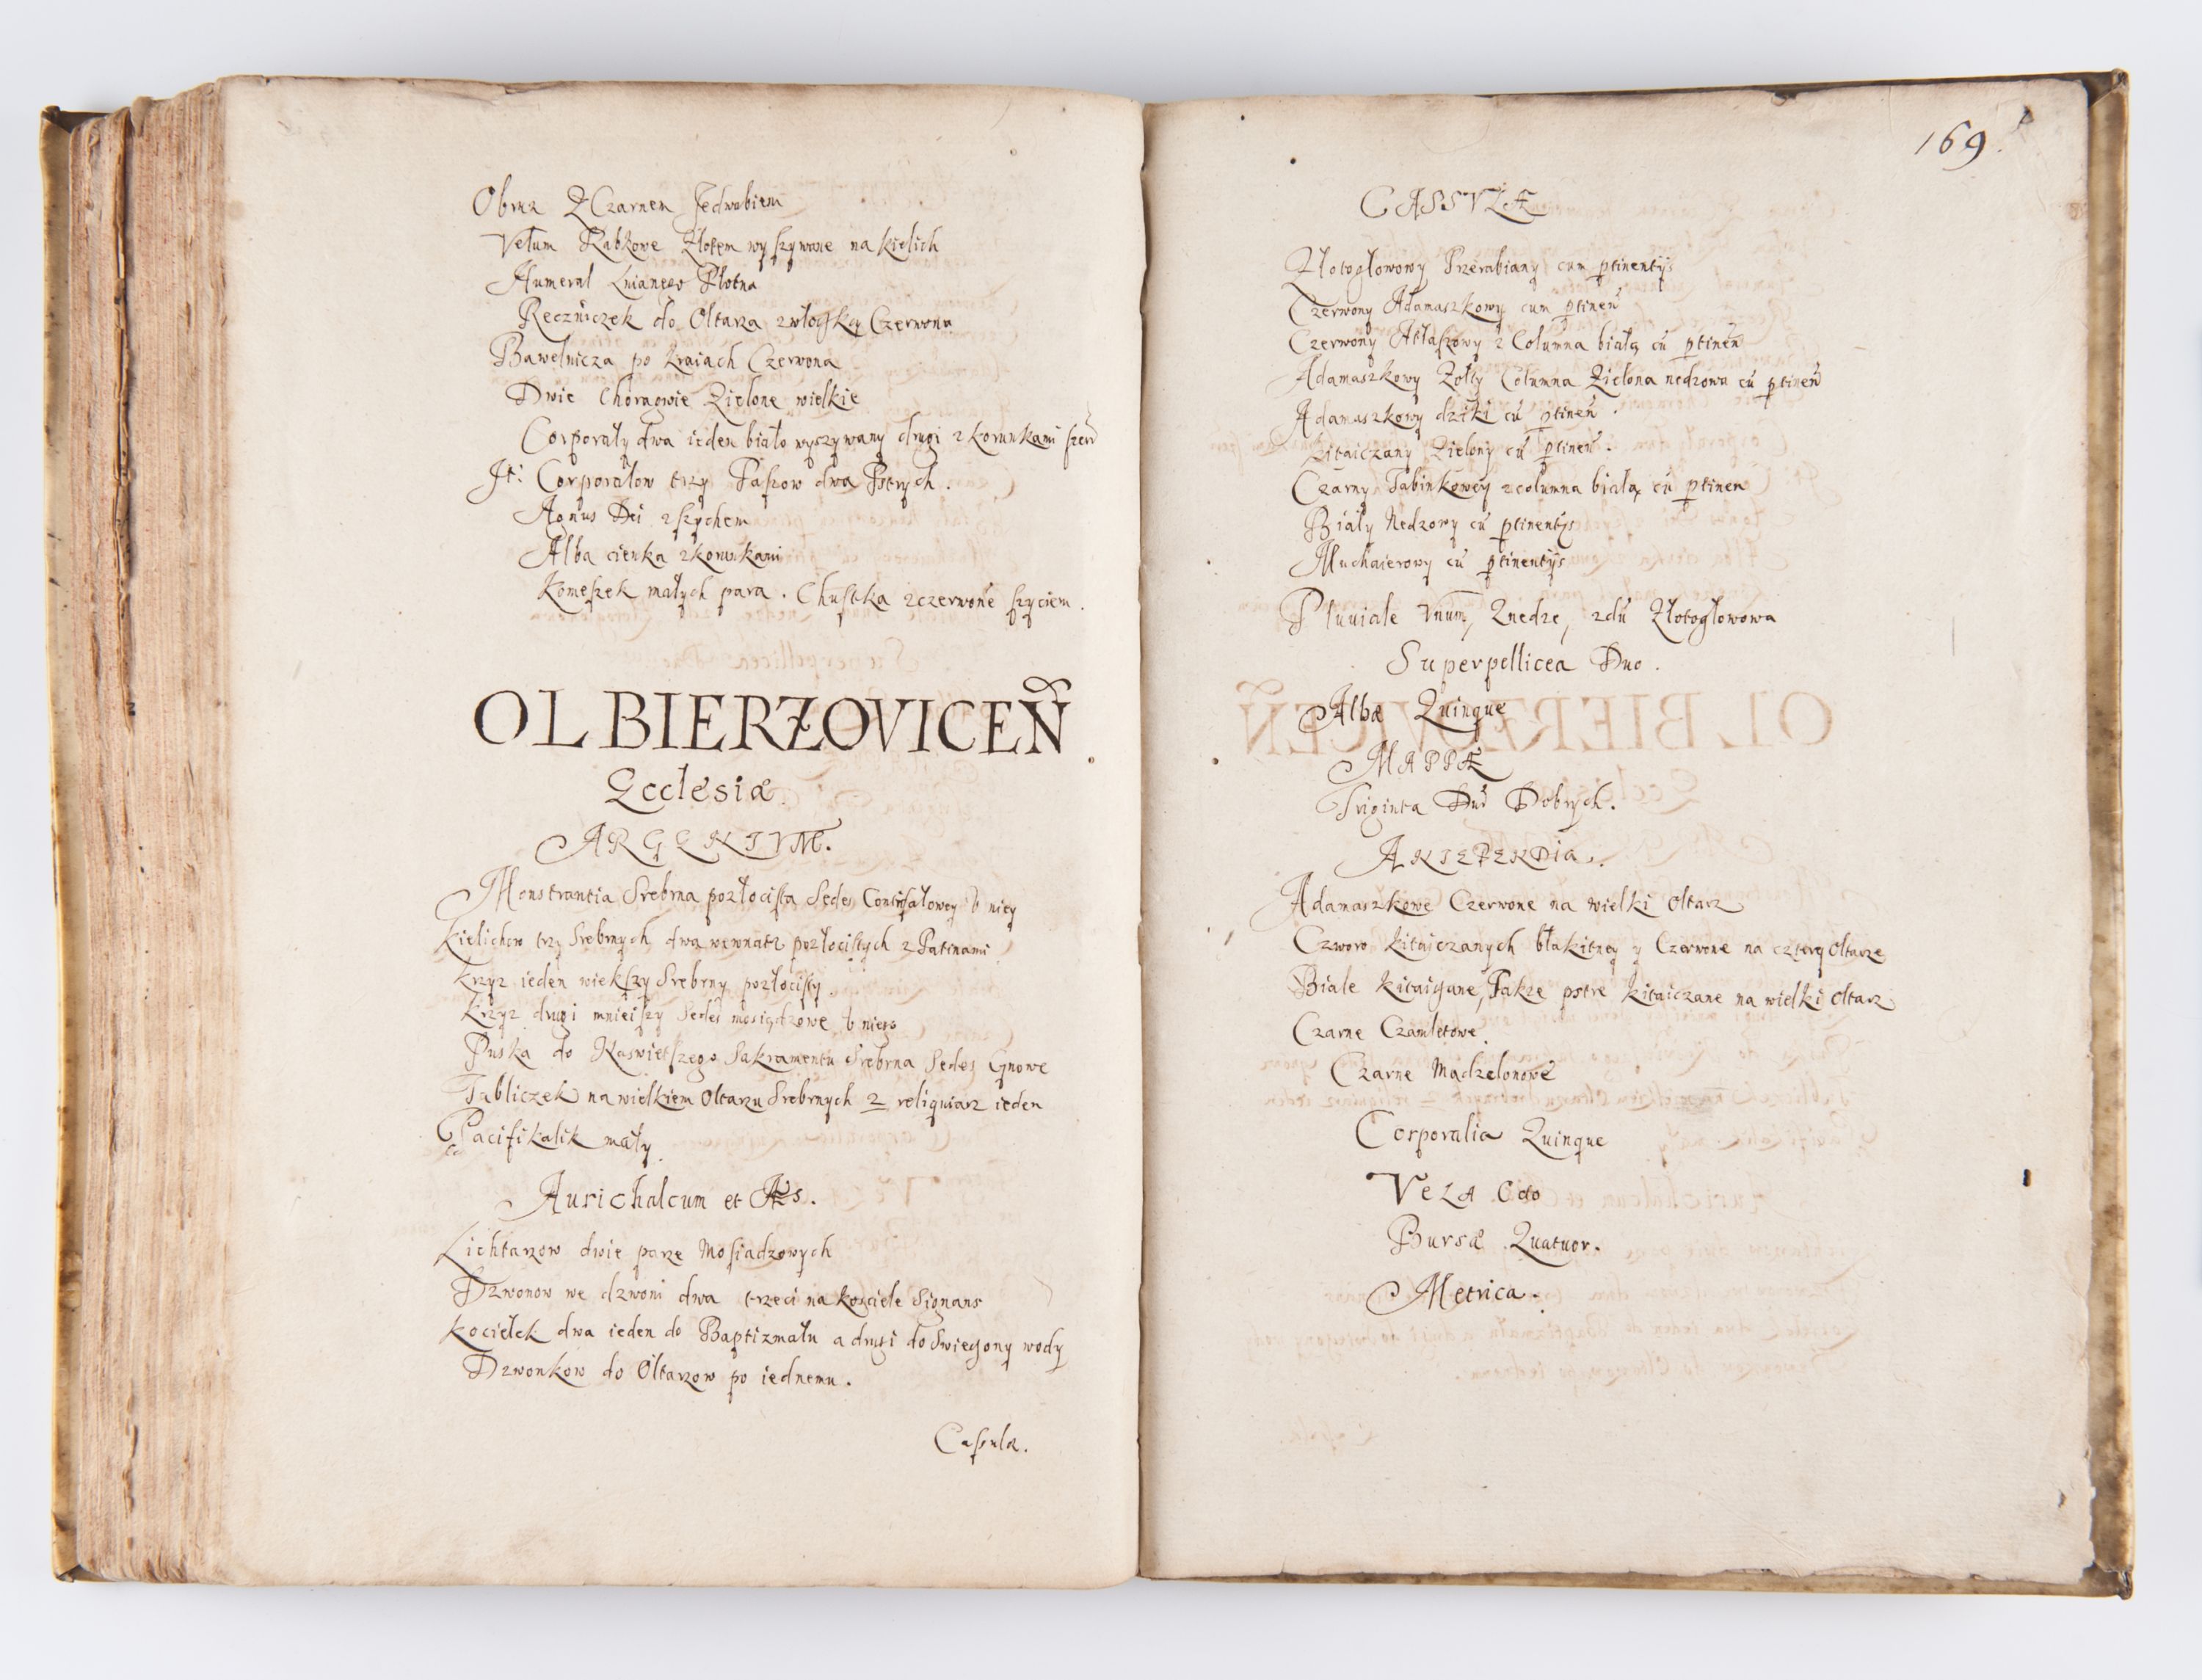 Obruz Z Czarnem Jedwabiem
Velum Rabkowe Złotem wyſzywane na kielich
Humeral Lnianego Płotna
Ręczniczek do Ołtarza z włoczką Czerwoną
Bawełnicza po kraiach Czerwona
Dwie Choragwie Zielone wielkie
Corporały dwa ieden biało wyszywany drugi z koronkami
It: Corporałow trzy Paſzow dwa Pstrych.
Agnus Dei z ſzychem
Alba cienka z koronkami
Komeſzek małych para. Chuſtka z czerwone ſzyciem.
OLBIERZOVICEN̄
Ecclesiæ
ARGENTVM.
Monstrantia Srebrna pozłociſta Sedes Conterfałowey v niey
Kielichow trzy Srebrnych dwa wewnatz pozłociſtych z Patinami
Krzyz ieden wiekſzy Srebrny pozłociſty
Krzyz drugi mnieiſzy Sedes mosiądzowe v niego
Puska do Naswietſzego Sakramentu Srebrna Sedes Cynowe
Tabliczek na wielkiem Ołtarzu Srebrnych 2 reliquiarz ieden
Pacifikalik mały
Aurichalcum et Æs.
Lichtarzow dwie parze Moſiadzowych
Dzwonow we dzwoni dwa trzeci na kosciele Signans
Kociełek dwa ieden do Baptizmału a drugi do Swiegony wody
Dzwonkow do Ołtarzow po iednemu.
Caſulæ.
169
CASSVLÆ
Złotogłowowy Przerabiany cum ptinentijs
Czerwony Adamaszkowy cum ptineñ
Czerwony Atłaſzowy z Columna białą cū ptineñ
Adamaszkowy Zołty Columna Zielona nedzowa cū ptineñ
Adamaszkowy dziki cū ptineñ.
Kitaiczany Zielony cū ptineñ.
Czarny Tabinkowey z columna białą cū ptineñ
Biały Nedzowy cū ptinentijs
Muchaierowy cū ptinentijs
Pluuiale Vnum, Znedze, Złotogłowowa
Superpellicea Duo.
Albæ Quinque
MAPPÆ
Triginta Duæ Dobrych.
ANTEPENDIA.
Adamaszkowe Czerwone na wielki Ołtarz
Czworo Kitaiczanych błakitney y Czerwone na cztery Ołtarze
Białe Kitaigane, Takze pstre Kitaiczane na wielki Ołtarz
Czarne Czamletowe.
Czarne Madzelonowe
Corporalia Quinque
VELA Octo
Bursæ Quatuor.
Metrica.